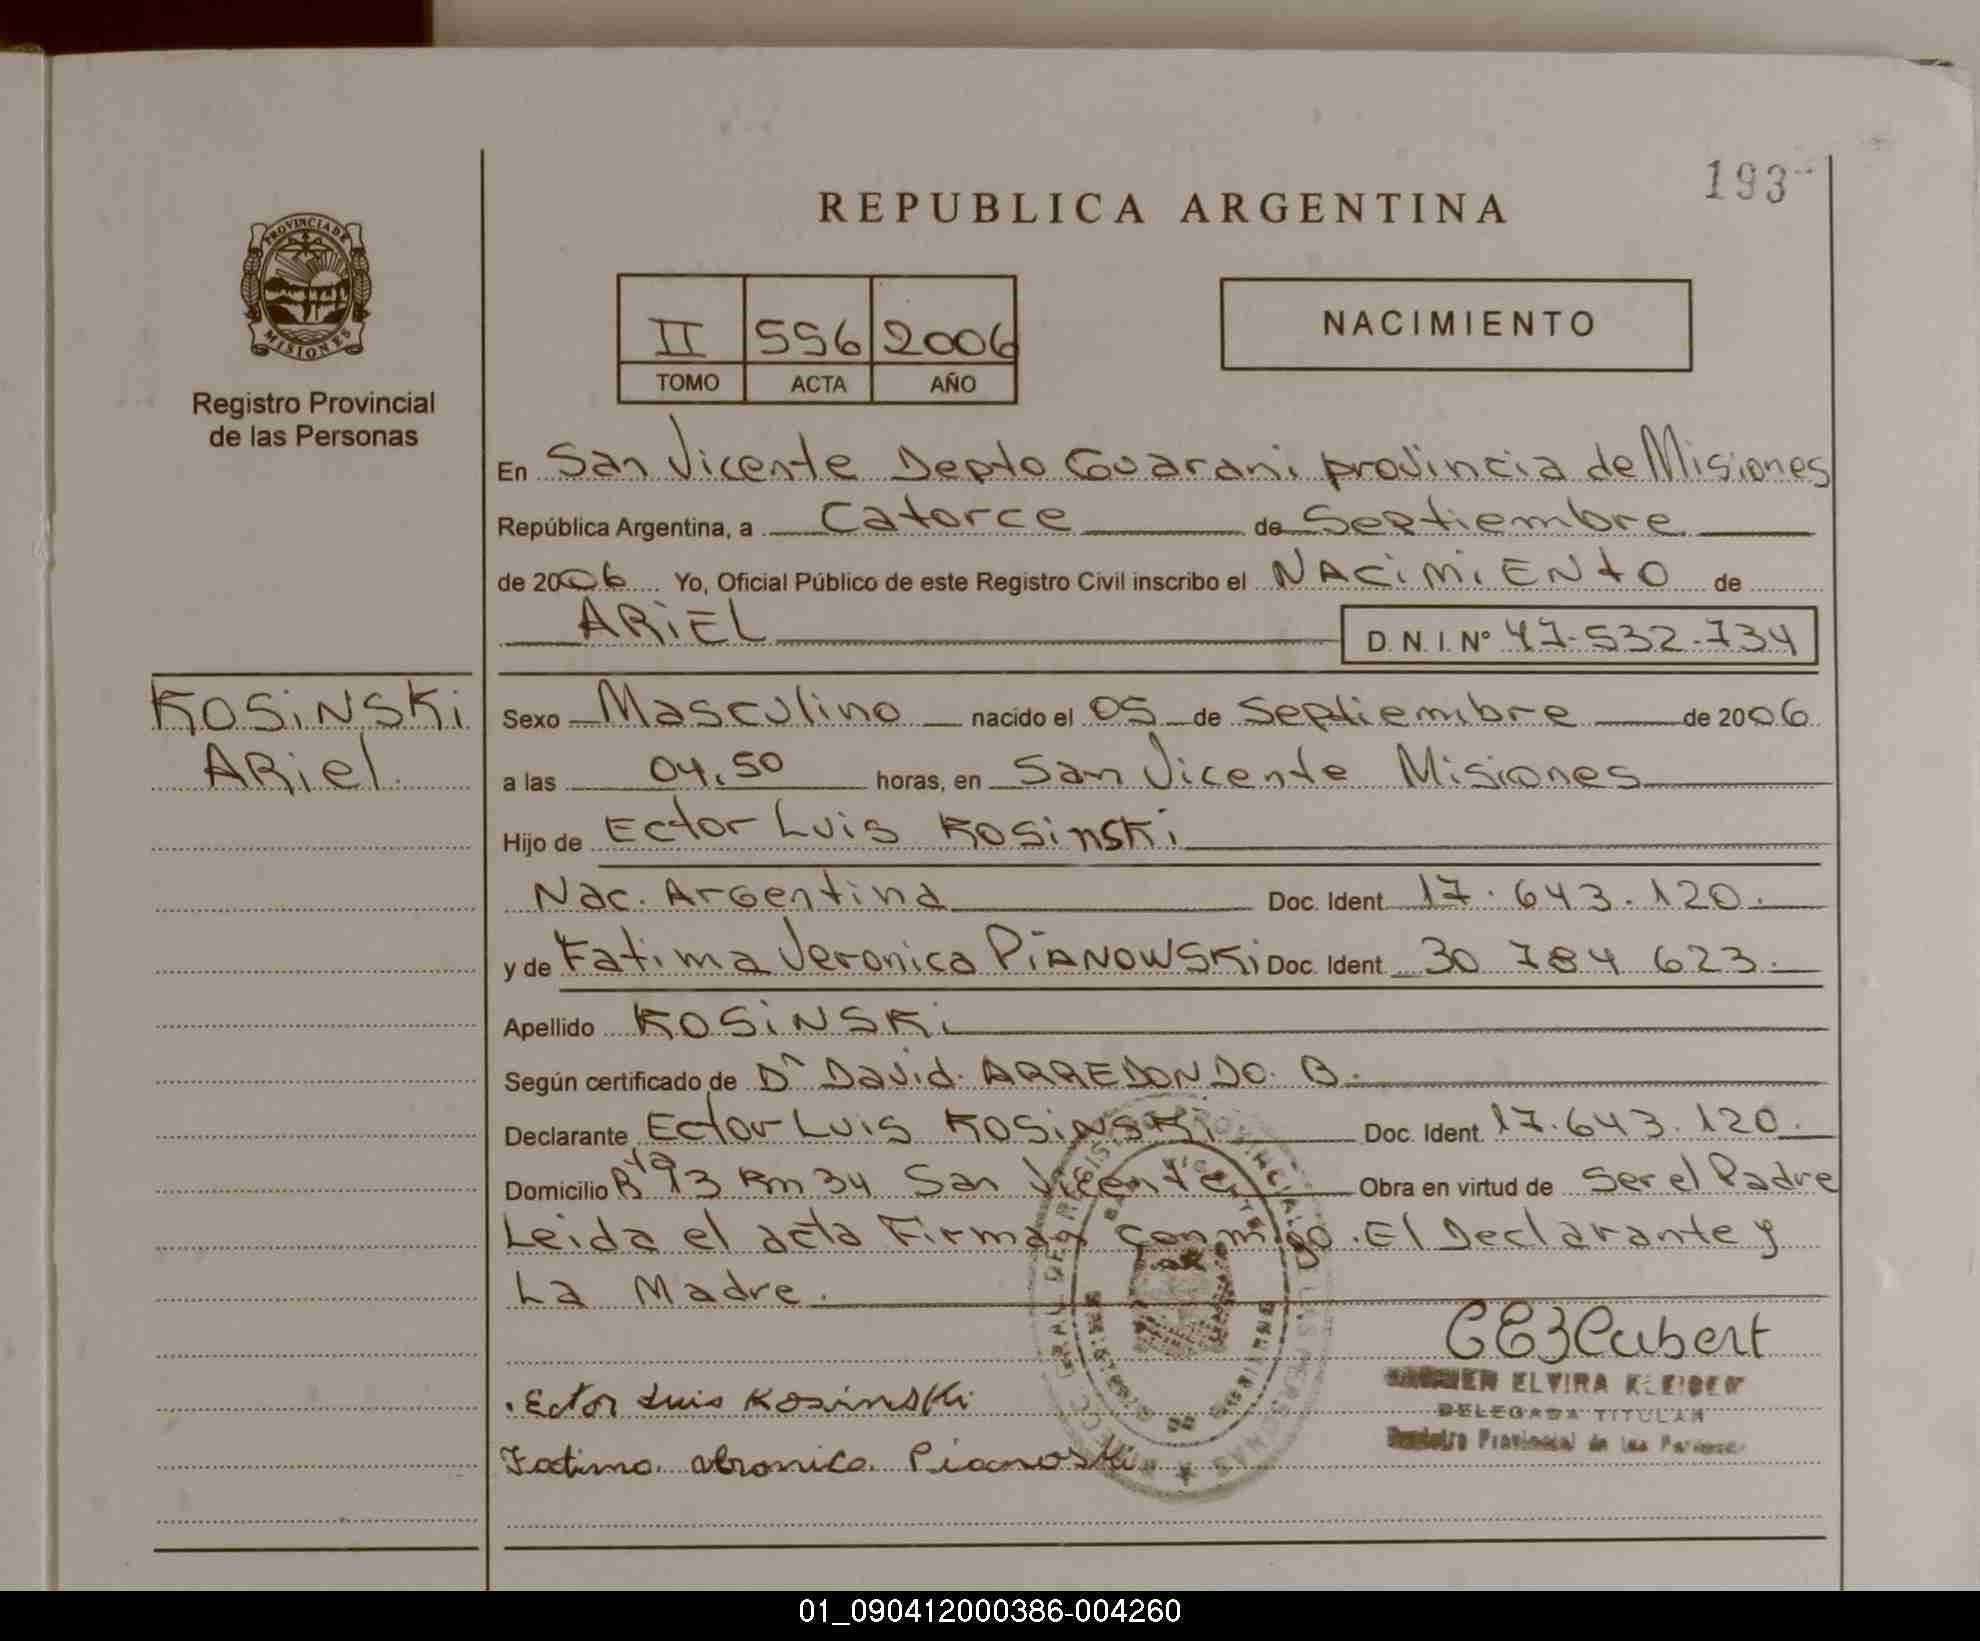 193
REPUBLICA ARGENTINA
PROVINCIA DE
MISIONES
Registro Provincial
de las Personas
II 556 2006
TOMO ACTA AÑO
NACIMIENTO
En San Vicente Depto Guarani provincia de Misiones
República Argentina, a Catorce de Septiembre
de 2006 Yo, Oficial Público de este Registro Civil inscribo el NACIMIENTO de
ARIEL D.N.I. Nº 47.532.734
KOSINSKI
ARiel
Sexo Masculino nacido el 05 de Septiembre de 2006
a las 04.50 horas, en San Vicente Misiones
Hijo de Ector Luis Kosinski
Nac. Argentina Doc. Ident. 17.643.120.
y de Fatima Veronica PIANOWSKi Doc. Ident. 30 784 623.
Apellido KOSINSKi
Según certificado de Dr David ARREDONDO. B.
Declarante Ector Luis KOSINSKi Doc. Ident. 17.643.120.
Domicilio Km 34 San Vicente Obra en virtud de Ser el Padre
Leida el acta Firman conmigo. El Declarante y
La Madre.
CE3Cubert
ELVIRA KLEIBER
DELEGADA TITULAR
Registro Provincial de las Personas
Ector Luis Kosinski
Fatima. Pianoski
01_090412000386-004260